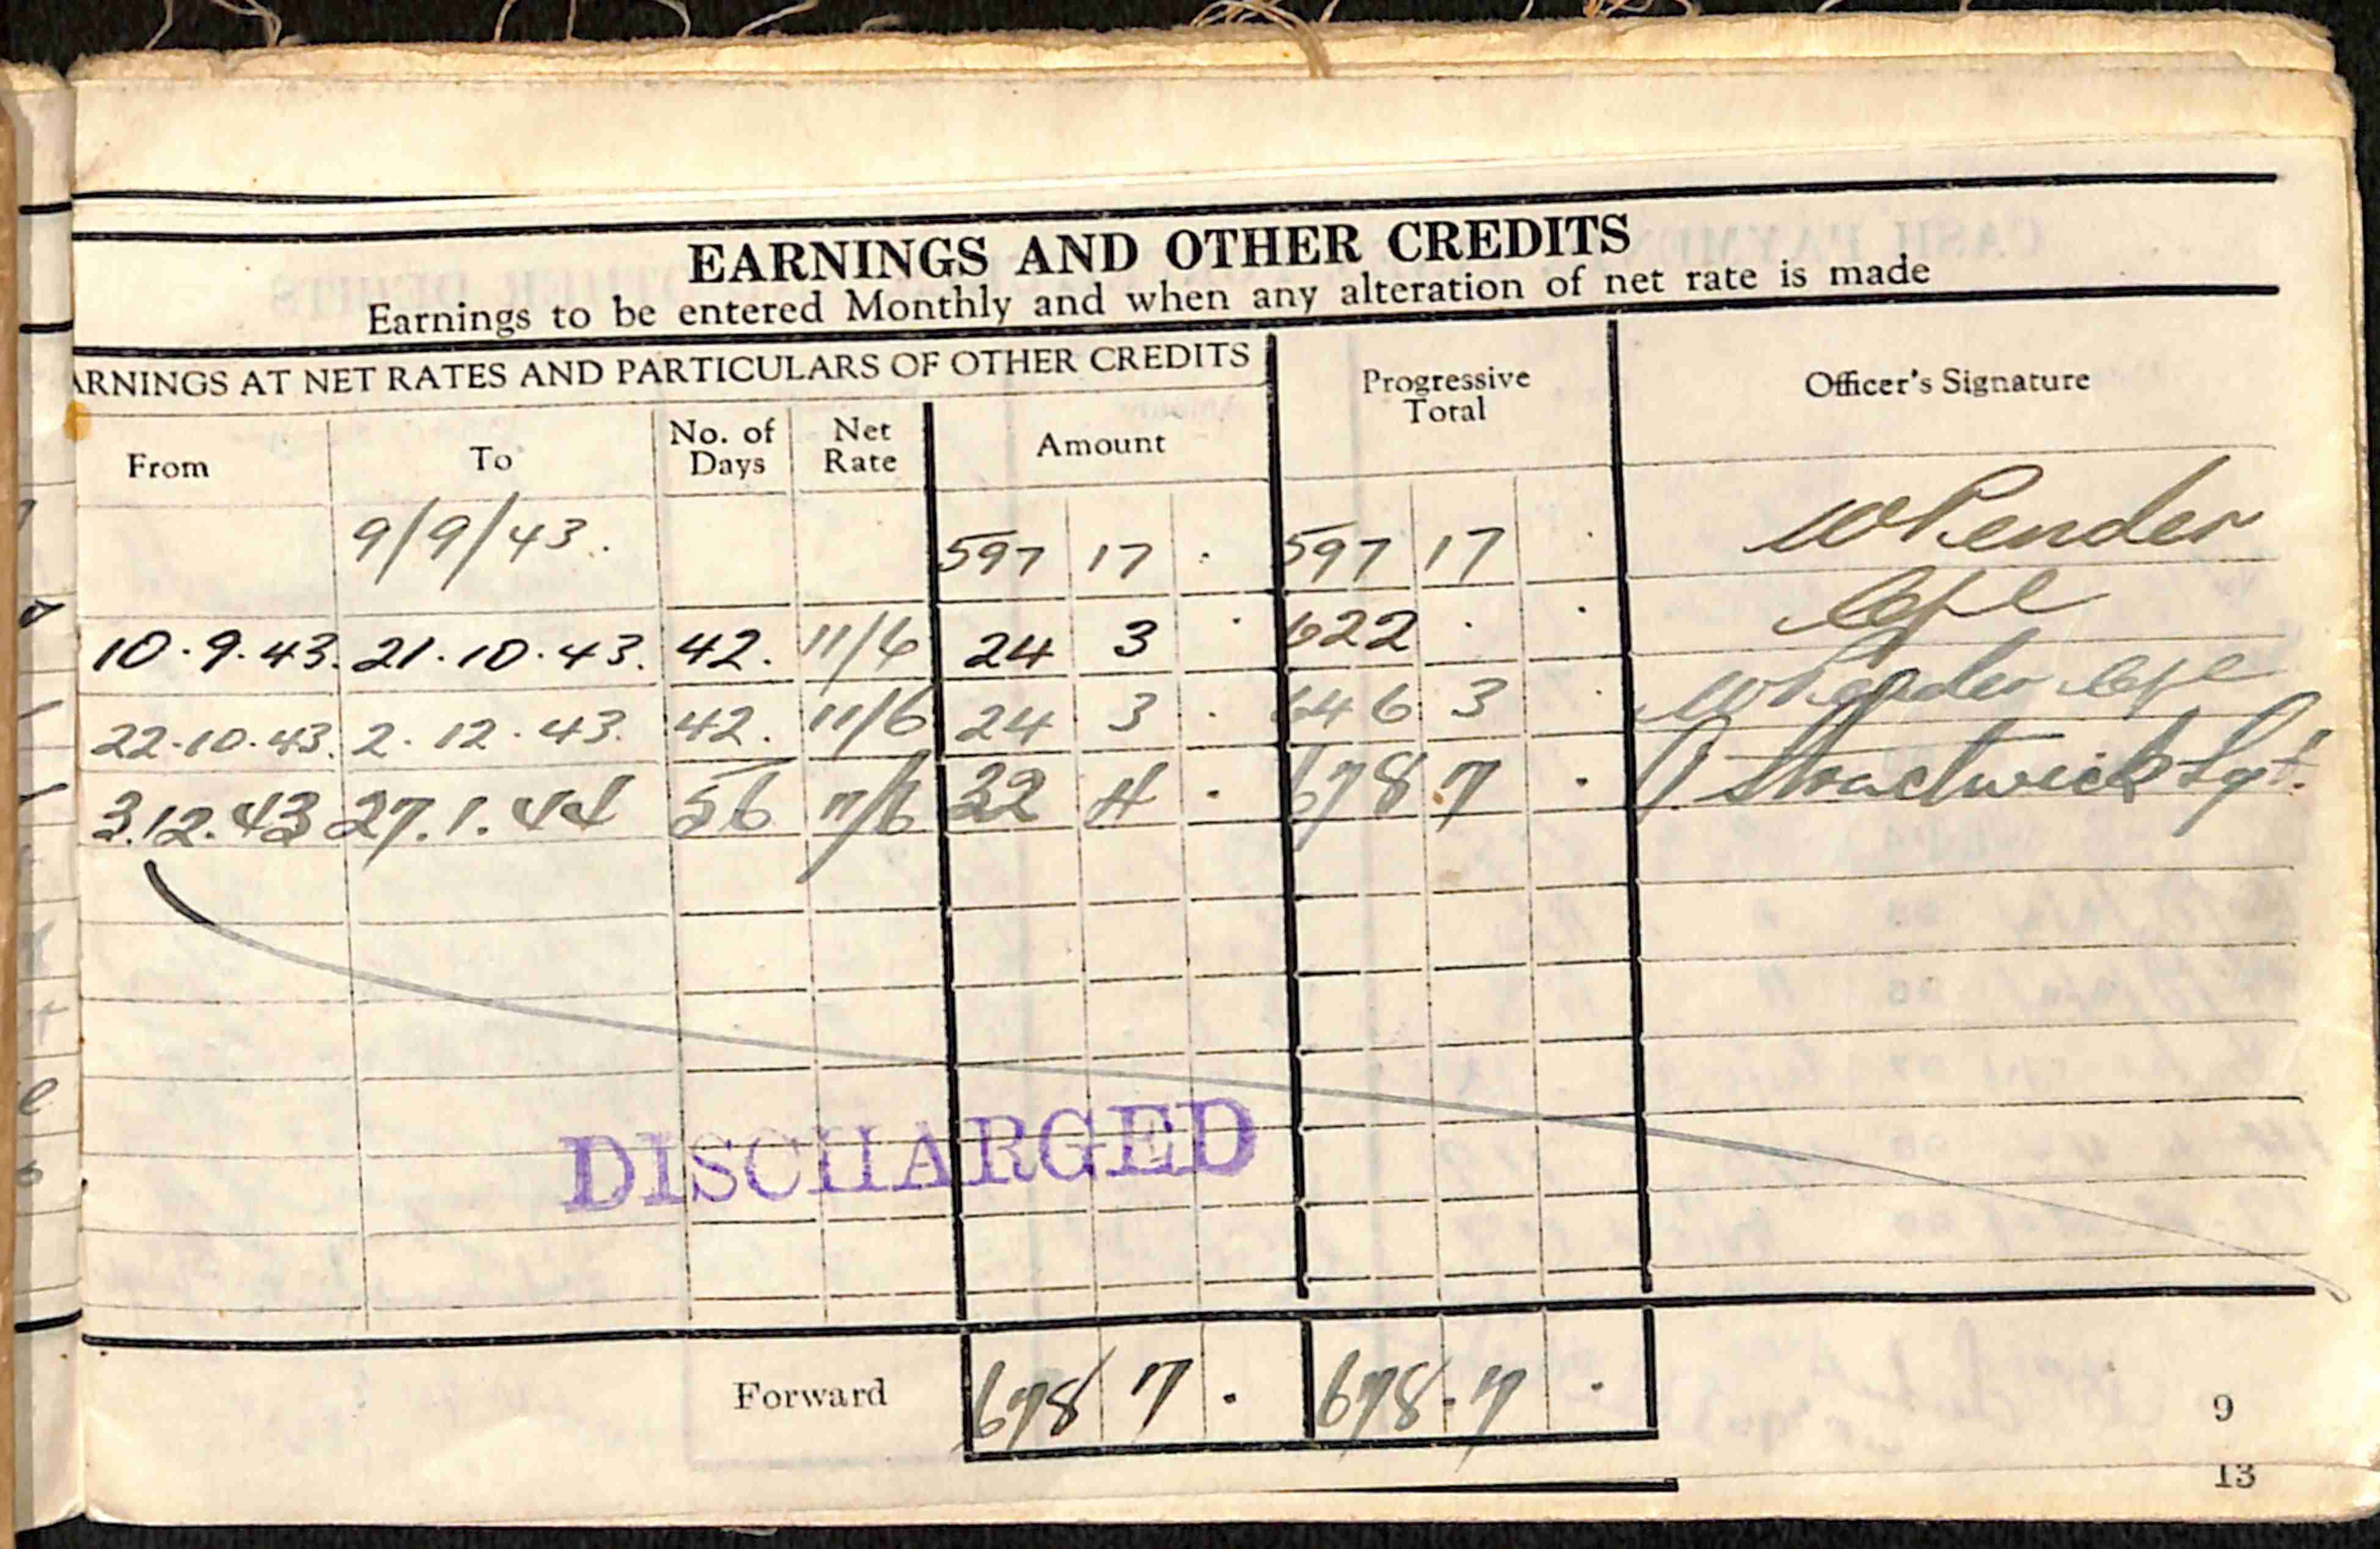 EARNINGS AND OTHER CREDITS
Earnings to be entered Monthly and when any alteration of net rate is made
ARNINGS AT NET RATES AND PARTICULARS OF OTHER CREDITS
Progressive Total
Officer's Signature
From To No. of Days Net Rate Amount
9/9/43. 597 17 · 597 17 · W Pender
Cpl
10·9·43. 21·10·43. 42. 11/6 24 3 · 622 · ·
22·10·43. 2·12·43. 42. 11/6 24 3 · 646 3 · W Pender Cpl
3.12.43 27.1.44 56 11/6 32 4 · 678 7 · Stractwick Sgt.
DISCHARGED
Forward 678 7 · 678·7 ·
9
13